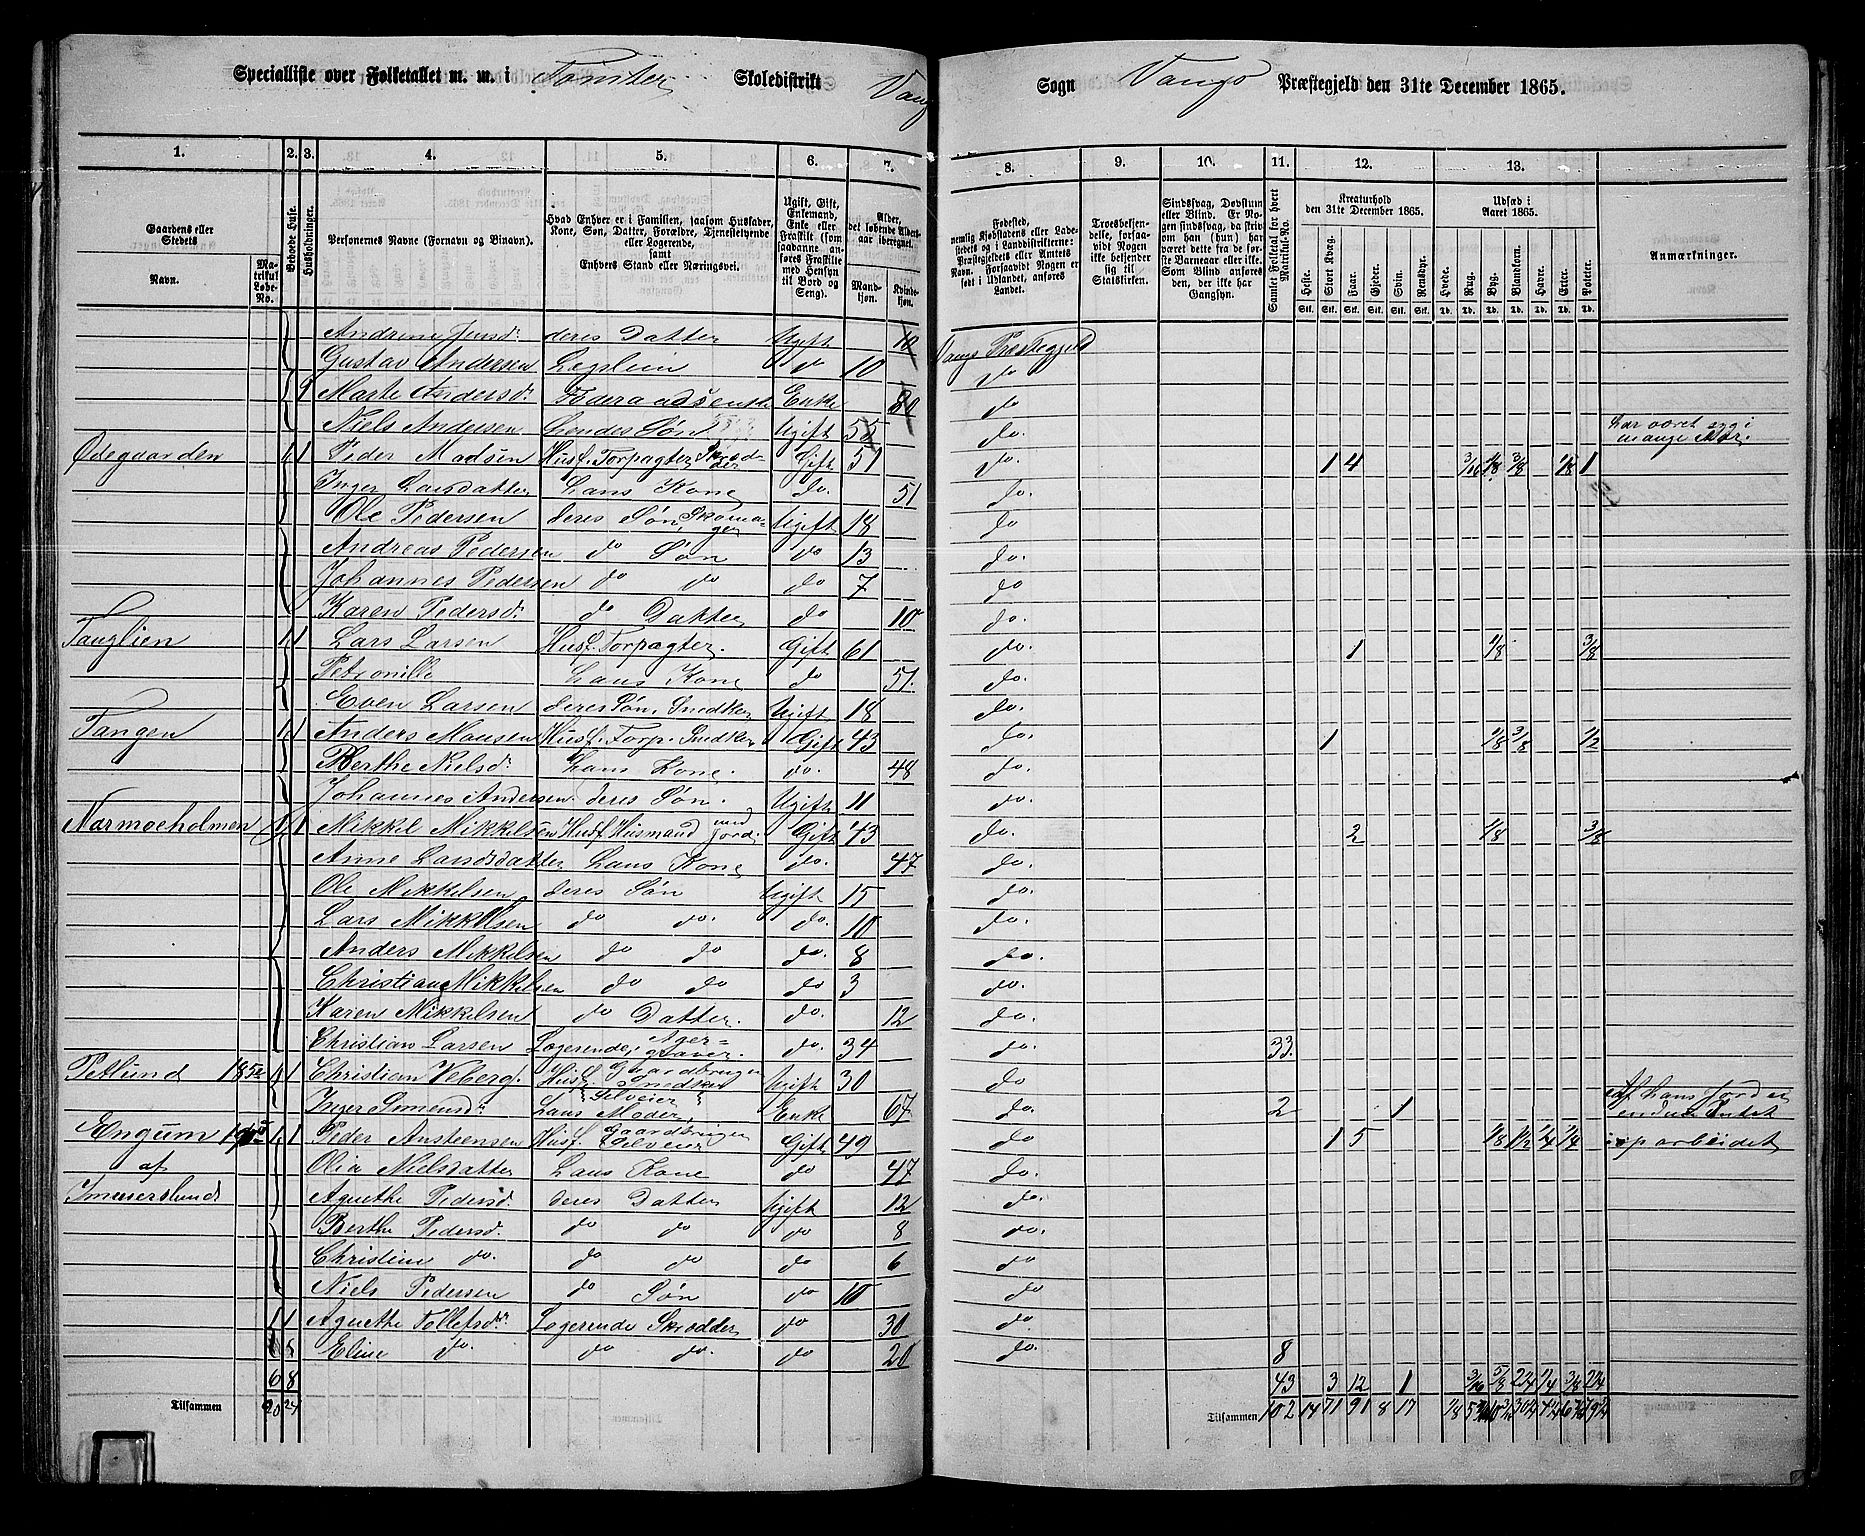 Specialliste over Folketallet m. m. i Tomter Skoledistrikt Vang Sogn Vangs Præstegjeld den 31te December 1865.
1. 2. 3. 4. 5. 6. 7. 8. 9. 10. 11. 12. 13.
Gaardens eller Stedets Navn. Matrikul Løbe-No. Beboede Huse. Husholdninger. Personernes Navne (Fornavn og Binavn). Hvad Enhver er i Familien, saasom Husfader, Kone, Søn, Datter, Forældre, Tjenestetyende eller Logerende, samt Enhvers Stand eller Næringsvei. Ugift, Gift, Enkemand, Enke eller Fraskilt (som saadanne anføres Fraskilte med Hensyn til Bord og Seng). Alder, det løbende Aldersaar iberegnet. Mandkjøn. Kvindekjøn.
Fødested, nemlig Kjøbstadens eller Ladestedets og i Landdistrikterne: Præstegjeldets eller Amtets Navn. Forsaavidt Nogen er født i Udlandet, anføres Landet. Troesbekjendelse, forsaavidt Nogen ikke bekjender sig til Statskirken. Sindssvag, Døvstum eller Blind. Er Nogen sindssvag, da skrives om han (hun) har været dette fra de første Barneaar eller ikke. Som Blind anføres den, der ikke har Gangsyn. Samlet Folketal for hvert Matrikul-No. Kreaturhold den 31te December 1865. Heste. Stort Kvæg. Faar. Gjeder. Svin. Rensdyr. Udsæd i Aaret 1865. Hvede. Rug. Byg. Blandkorn. Havre. Erter. Poteter. Anmærkninger.
Andrine Jensd. deres Datter Ugift 10 Vangs Præstegjeld
Gustav Andersen Logslem do 10 do
9 Marte Andersd. Føderaadsenke Enke 80 do
Niels Andersen hendes Søn Ugift 55 do. har været syg i mange Aar.
Ødegaarden 1 1 Peder Madsen Husf. Torpagter Skrædder Gift 51 do. 1 4 3/16 1/8 3/8 1/8 1
Inger Larsdatter hans Kone do. 51 do.
Ole Pedersen deres Søn, Skomager Ugift 18 do
Andreas Pedersen do Søn do 13 do.
Johannes Pedersen do do do 7 do
Karen Pedersd. do Datter do 10 do.
Tanglien 1 1 Lars Larsen Husf. Torpagter. Gift 61 do. 1 1/8 3/8
Petronille hans Kone do 51. do.
Even Larsen deres Søn, Snedker Ugift 18 do.
Tangen 1 1 Anders Monsen Husf. Torp. Snedker Gift 43 do. 1 1/8 3/8 1/2
Berthe Nielsd. hans Kone. do. 48 do.
Johannes Andersen. deres Søn. Ugift 11 do.
Narmoeholmen 1 1 Mikkel Mikkelsen Husf. Husmand med Jord Gift 43 do. 2 1/8 3/8
Anne Larsdatter hans Kone do. 47 do.
Ole Mikkelsen deres Søn Ugift 15 do.
Lars Mikkelsen do do. do. 10 do.
Anders Mikkelsen do do do. 8 do.
Christian Mikkelsen do do do 3 do.
Karen Mikkelsen do Datter. do. 12 do.
Christian Larsen Logerende, Agergraver. do. 34 do. 33.
Petlund 185 1 1 Christian Veberg. Husf. Gaardbruger Snedker Ugift 30 do
Inger Simensd. hans Moder, Selveier Enke 67 do. 2 1 Af hans Jord er endnu Intet
Engum 1 1 Peder Austeensen Husf. Gaardbruger Selveier Gift 49 do 1 5 1/8 1 1/2 1/4 1/4 oparbeidet
af Olia Nielsdatter hans Kone do 47 do.
Imerslund Agnethe Pedersd. deres Datter Ugift 12 do
Berthe Pedersd. do do do 8 do.
Christine do. do do do 6 do
Niels Pedersen do Søn do 10 do
1 1 Agnethe Tollefsd. Logerende Skrædder do 30 do.
Eline do. do do. do 20 do. 8
6 8 43 3 12 1 3/16 5/8 2 1/4 1/4 3/8 2 1/4
Tilsammen 20 24 Tilsammen 102 14 71 91 8 17 1/8